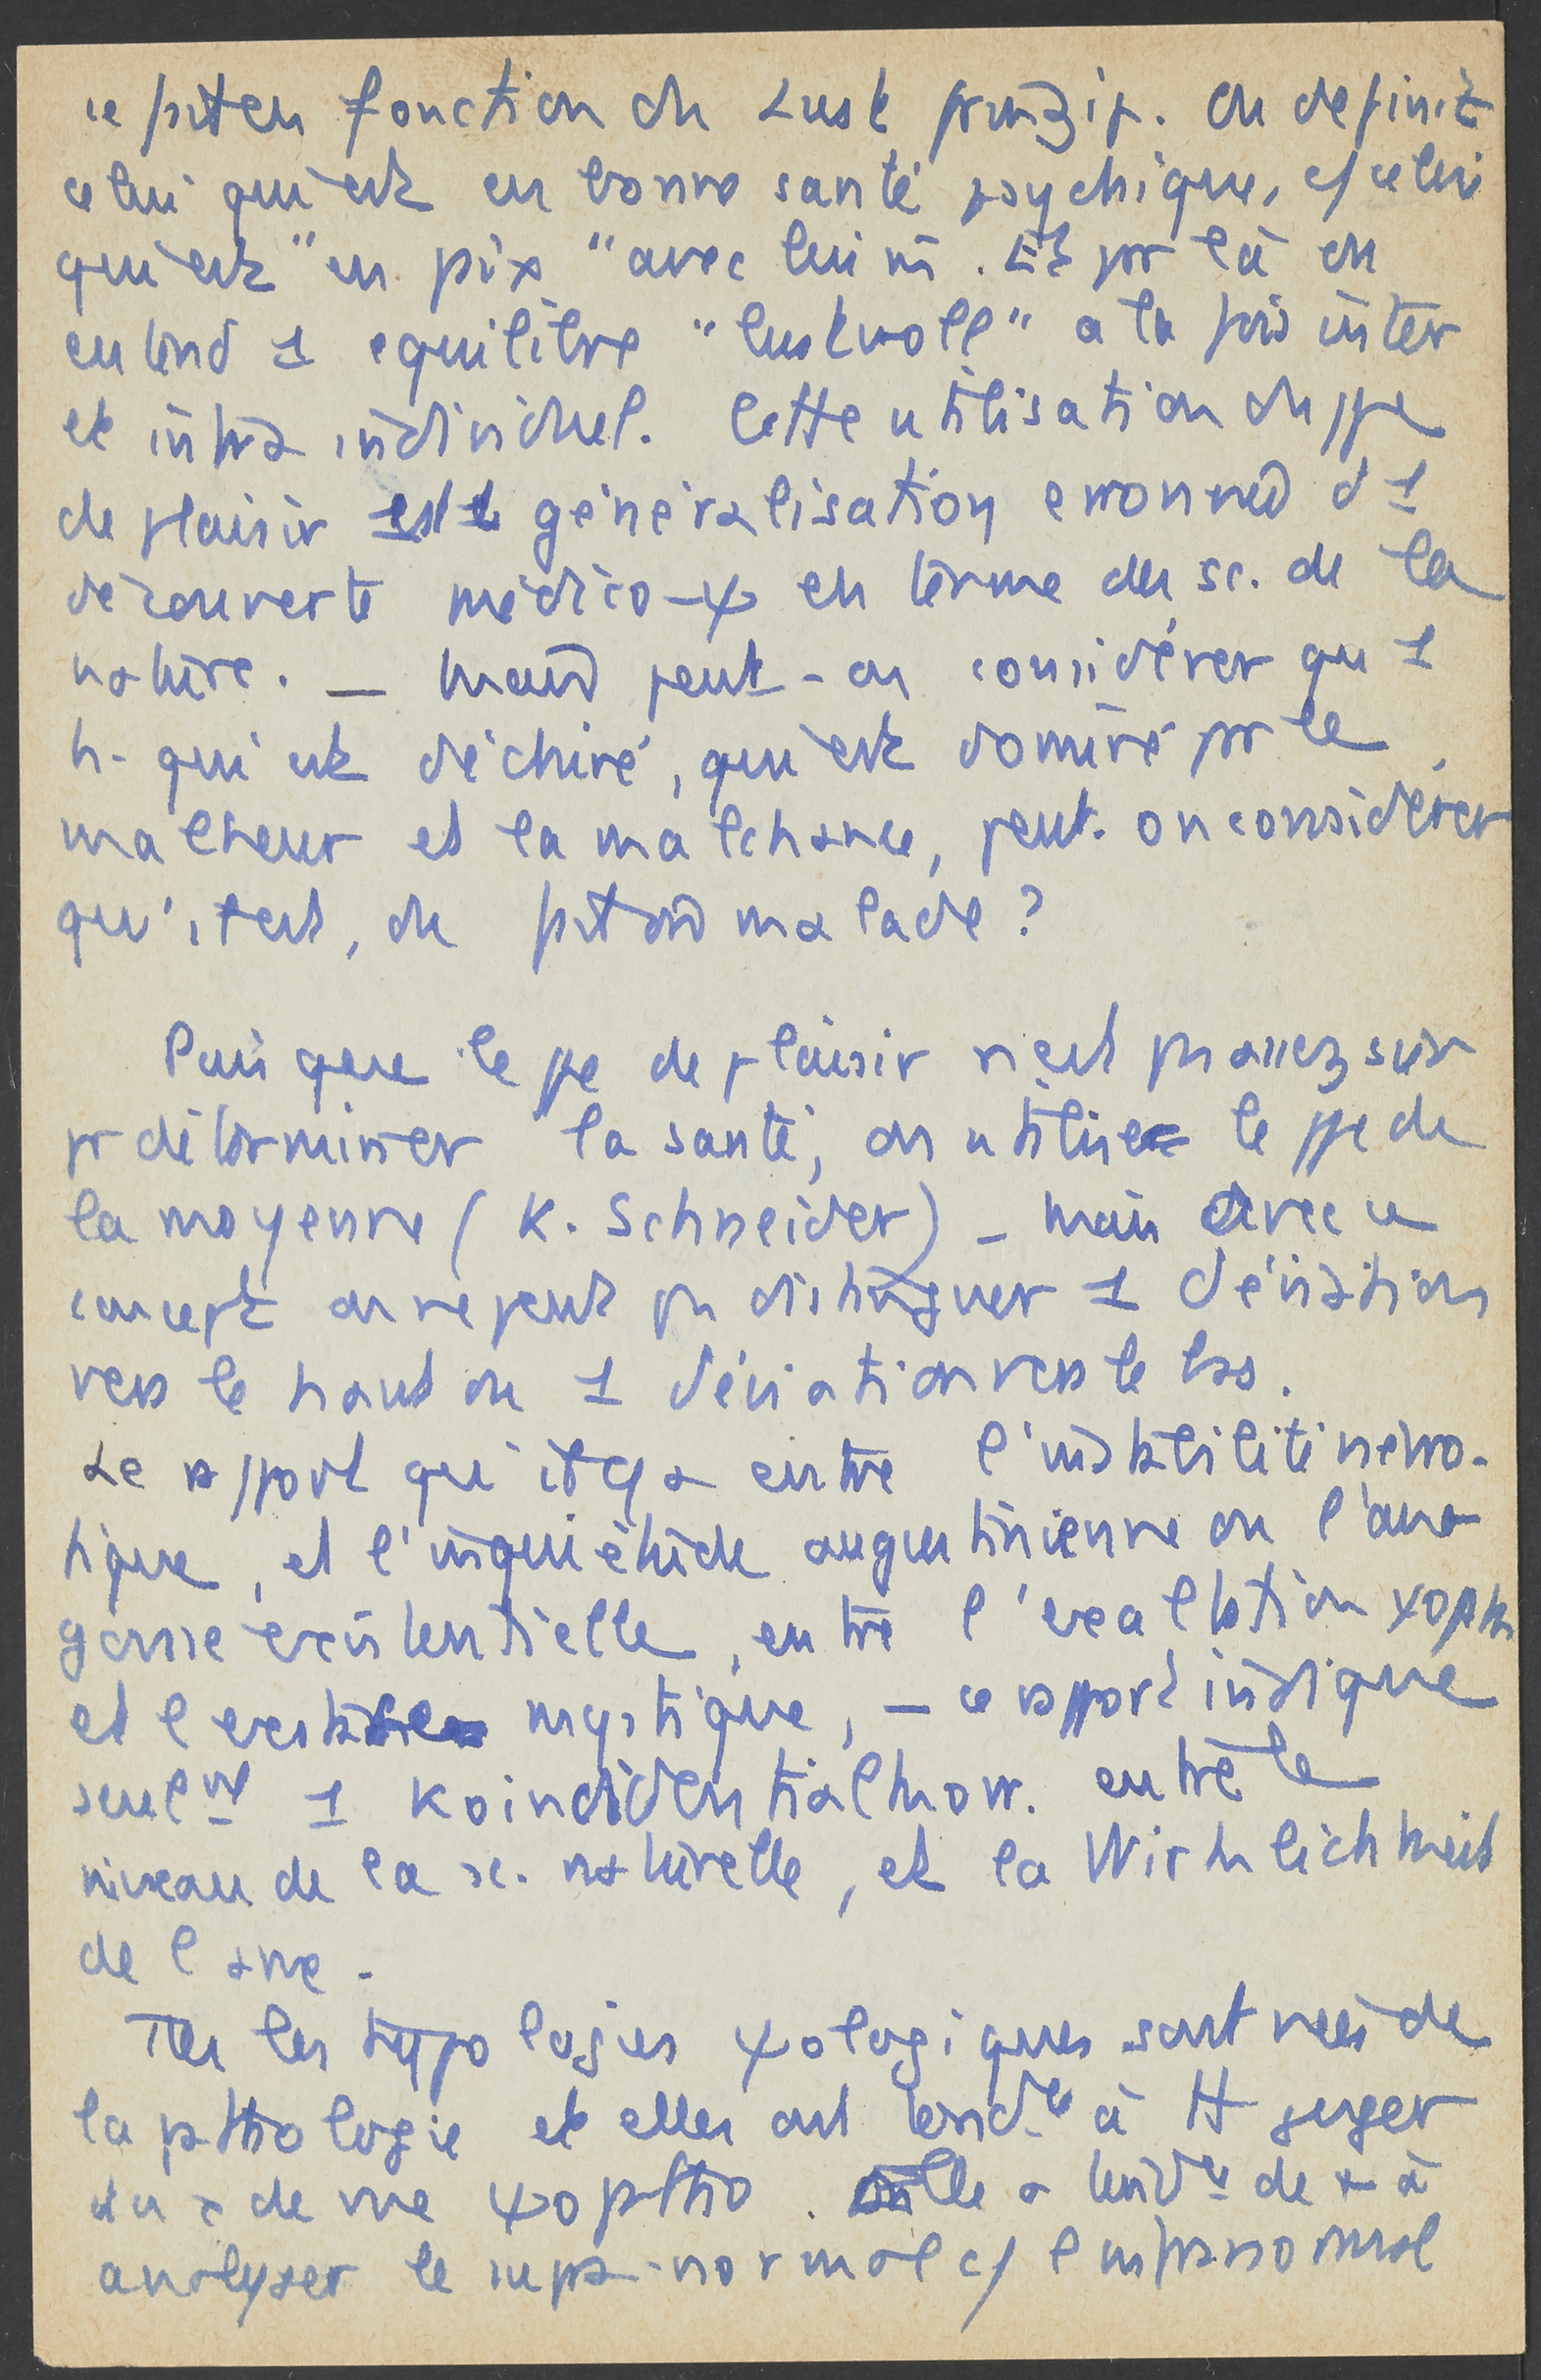 ce pt en fonction du Lust prinzip. On definit
celui qui est en bonne santé psychique, c/ celui
qui est "en paix" avec lui m̄. Et par là on
entend 1 equilibre "lustvoll" à la fois inter
et intra individuel. Cette utilisation du ppe
de plaisir est 1 généralisation erronée d'1
découverte médico-ψ en terme des sc. de la
nature. — Mais peut-on considérer qu'1
h. qui est déchiré, qui est dominé par le
malheur et la malchance, peut-on considérer
qu'il est, du pt de malade ?
Puisque le ppe de plaisir n'est pas assez sûr
pr déterminer la santé, on utilise le ppe de
la moyenne (K. Schneider) - mais avec ce
concept on ne peut pas distinguer 1 déviation
vers le haut ou 1 déviation vers le bas.
Le rapport qu'il y a entre l'instabilité névro-
tique, et l'inquiétude augustinienne ou l'an-
goisse existentielle, entre l'exaltation ψopath
et l'extase mystique, — ce rapport indique
seulnt 1 Koindidentialkorr. entre le
niveau de la sc. naturelle, et la Wirklichkeit
de l'ame.
Ttes les typologies ψologiques sont nées de
la pathologie et elles ont tendce à tt juger
du . de vue ψopatho. Elle a tendce de + à
analyser le supra-normal c/ l'infranormal